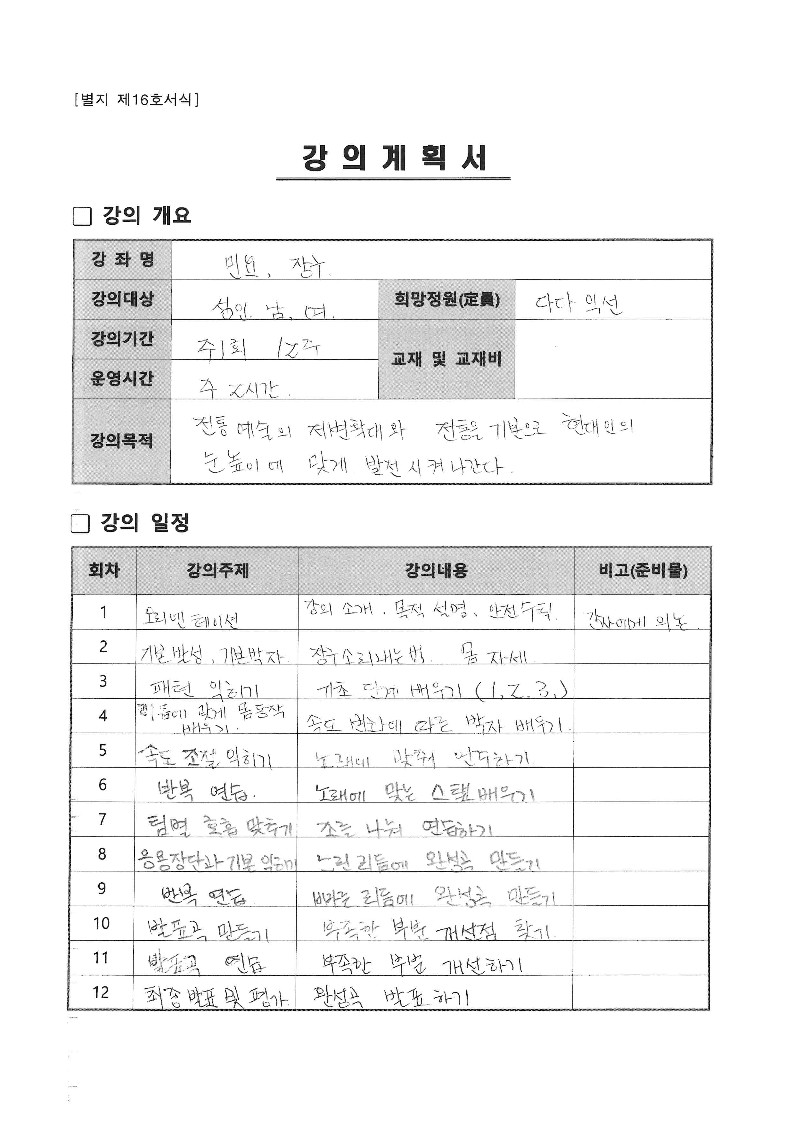 [별지 제16호서식]
강 의 계 획 서
□ 강의 개요
강 좌 명 민요, 장구.
강의대상 성인. 남, 여. 희망정원(定員) 다다 익선
강의기간 주1회 12주 교재 및 교재비
운영시간 주 2시간.
강의목적 전통 예술의 저변확대와 전통을 기본으로 현대인의
눈높이에 맞게 발전시켜나간다.
□ 강의 일정
회차 강의주제 강의내용 비고(준비물)
1 오리엔테이션 강의 소개, 목적 설명, 안전수칙. 강사에게 의논.
2 기본발성, 기본박자. 장구소리내는법. 몸 자세.
3 패턴 익히기 기초 단계 배우기 (1, 2, 3,)
4 리듬에 맞게 몸동작 배우기. 속도 변화에 따른 박자 배우기.
5 속도 조절 익히기 노래에 맞춰 연주하기
6 반복 연습. 노래에 맞는 스탭배우기
7 팀별 호흡 맞추기 조를 나눠 연습하기
8 응용장단과 기본 익히기 느린 리듬에 완성곡 만들기
9 반복 연습 빠른 리듬에 완성곡 만들기
10 발표곡 만들기 부족한 부분 개선점 찾기.
11 발표곡 연습 부족한 부분 개선하기
12 최종발표 및 평가. 완성곡 발표하기